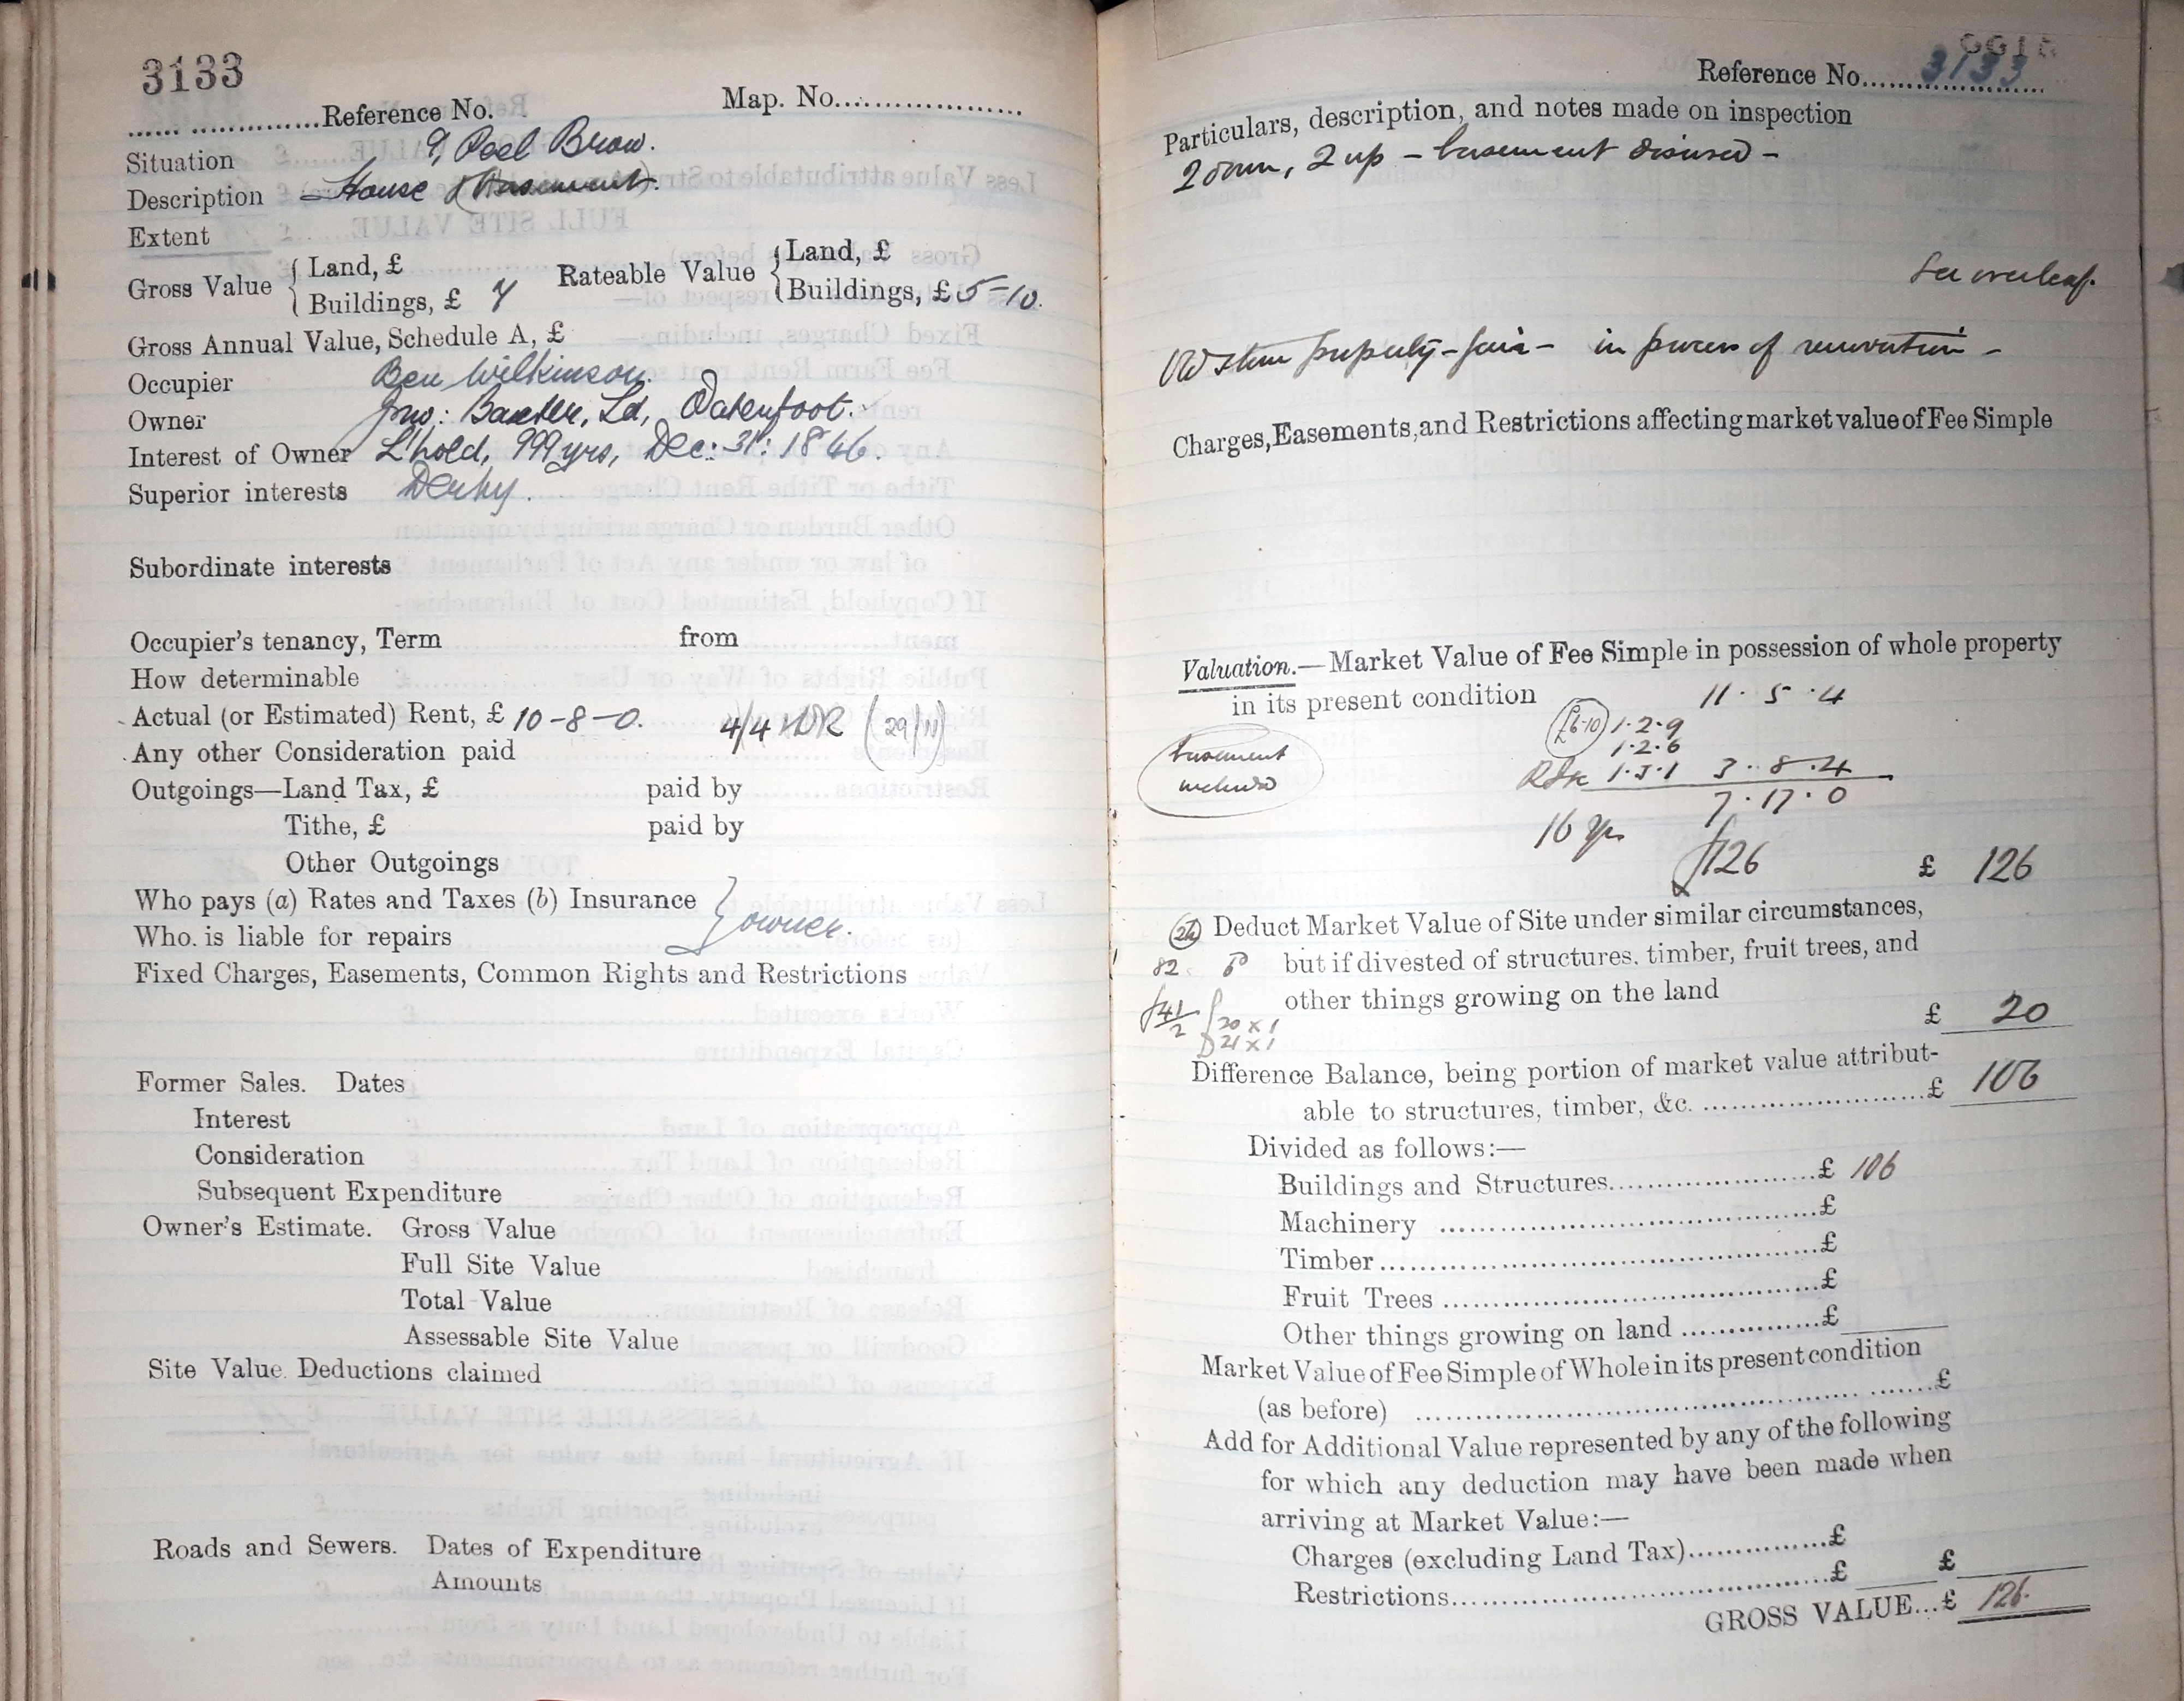 3133
Reference No. Map. No.
Situation 9, Peel Brow.
Description House & (Basement).
Extent
Gross Value { Land, £ Rateable Value { Land, £
Buildings, £ 7 Buildings, £ 5-10.
Gross Annual Value, Schedule A, £
Occupier Ben Wilkinson.
Owner Jno: Baxter, Ld, Waterfoot.
Interest of Owner L'hold, 999 yrs, Dec: 31: 1846.
Superior interests Derby.
Subordinate interests
Occupier's tenancy, Term from
How determinable
Actual (or Estimated) Rent, £ 10-8-0. 4/4 (29/11)
Any other Consideration paid
Outgoings—Land Tax, £ paid by
Tithe, £ paid by
Other Outgoings
Who pays (a) Rates and Taxes (b) Insurance } owner.
Who is liable for repairs
Fixed Charges, Easements, Common Rights and Restrictions
Former Sales. Dates
Interest
Consideration
Subsequent Expenditure
Owner's Estimate. Gross Value
Full Site Value
Total Value
Assessable Site Value
Site Value Deductions claimed
Roads and Sewers. Dates of Expenditure
Amounts
Reference No. 3133
Particulars, description, and notes made on inspection
2 down, 2 up - basement disused -
See overleaf.
Old stone property - fair - in process of renovation -
Charges, Easements, and Restrictions affecting market value of Fee Simple
Valuation.—Market Value of Fee Simple in possession of whole property
in its present condition 11. 5. 4
£6-10 1.2.9
1.2.6
basement
1.3.1 3. 8. 4
7. 17. 0
16 yrs £126 £ 126
Deduct Market Value of Site under similar circumstances,
82 but if divested of structures, timber, fruit trees, and
other things growing on the land
£41/2 £20 x 1 £ 20
21 x 1
Difference Balance, being portion of market value attribut-
able to structures, timber, &c. £ 106
Divided as follows:—
Buildings and Structures £ 106
Machinery £
Timber £
Fruit Trees £
Other things growing on land £
Market Value of Fee Simple of Whole in its present condition
(as before) £
Add for Additional Value represented by any of the following
for which any deduction may have been made when
arriving at Market Value:—
Charges (excluding Land Tax) £
Restrictions £ £
GROSS VALUE...£ 126.